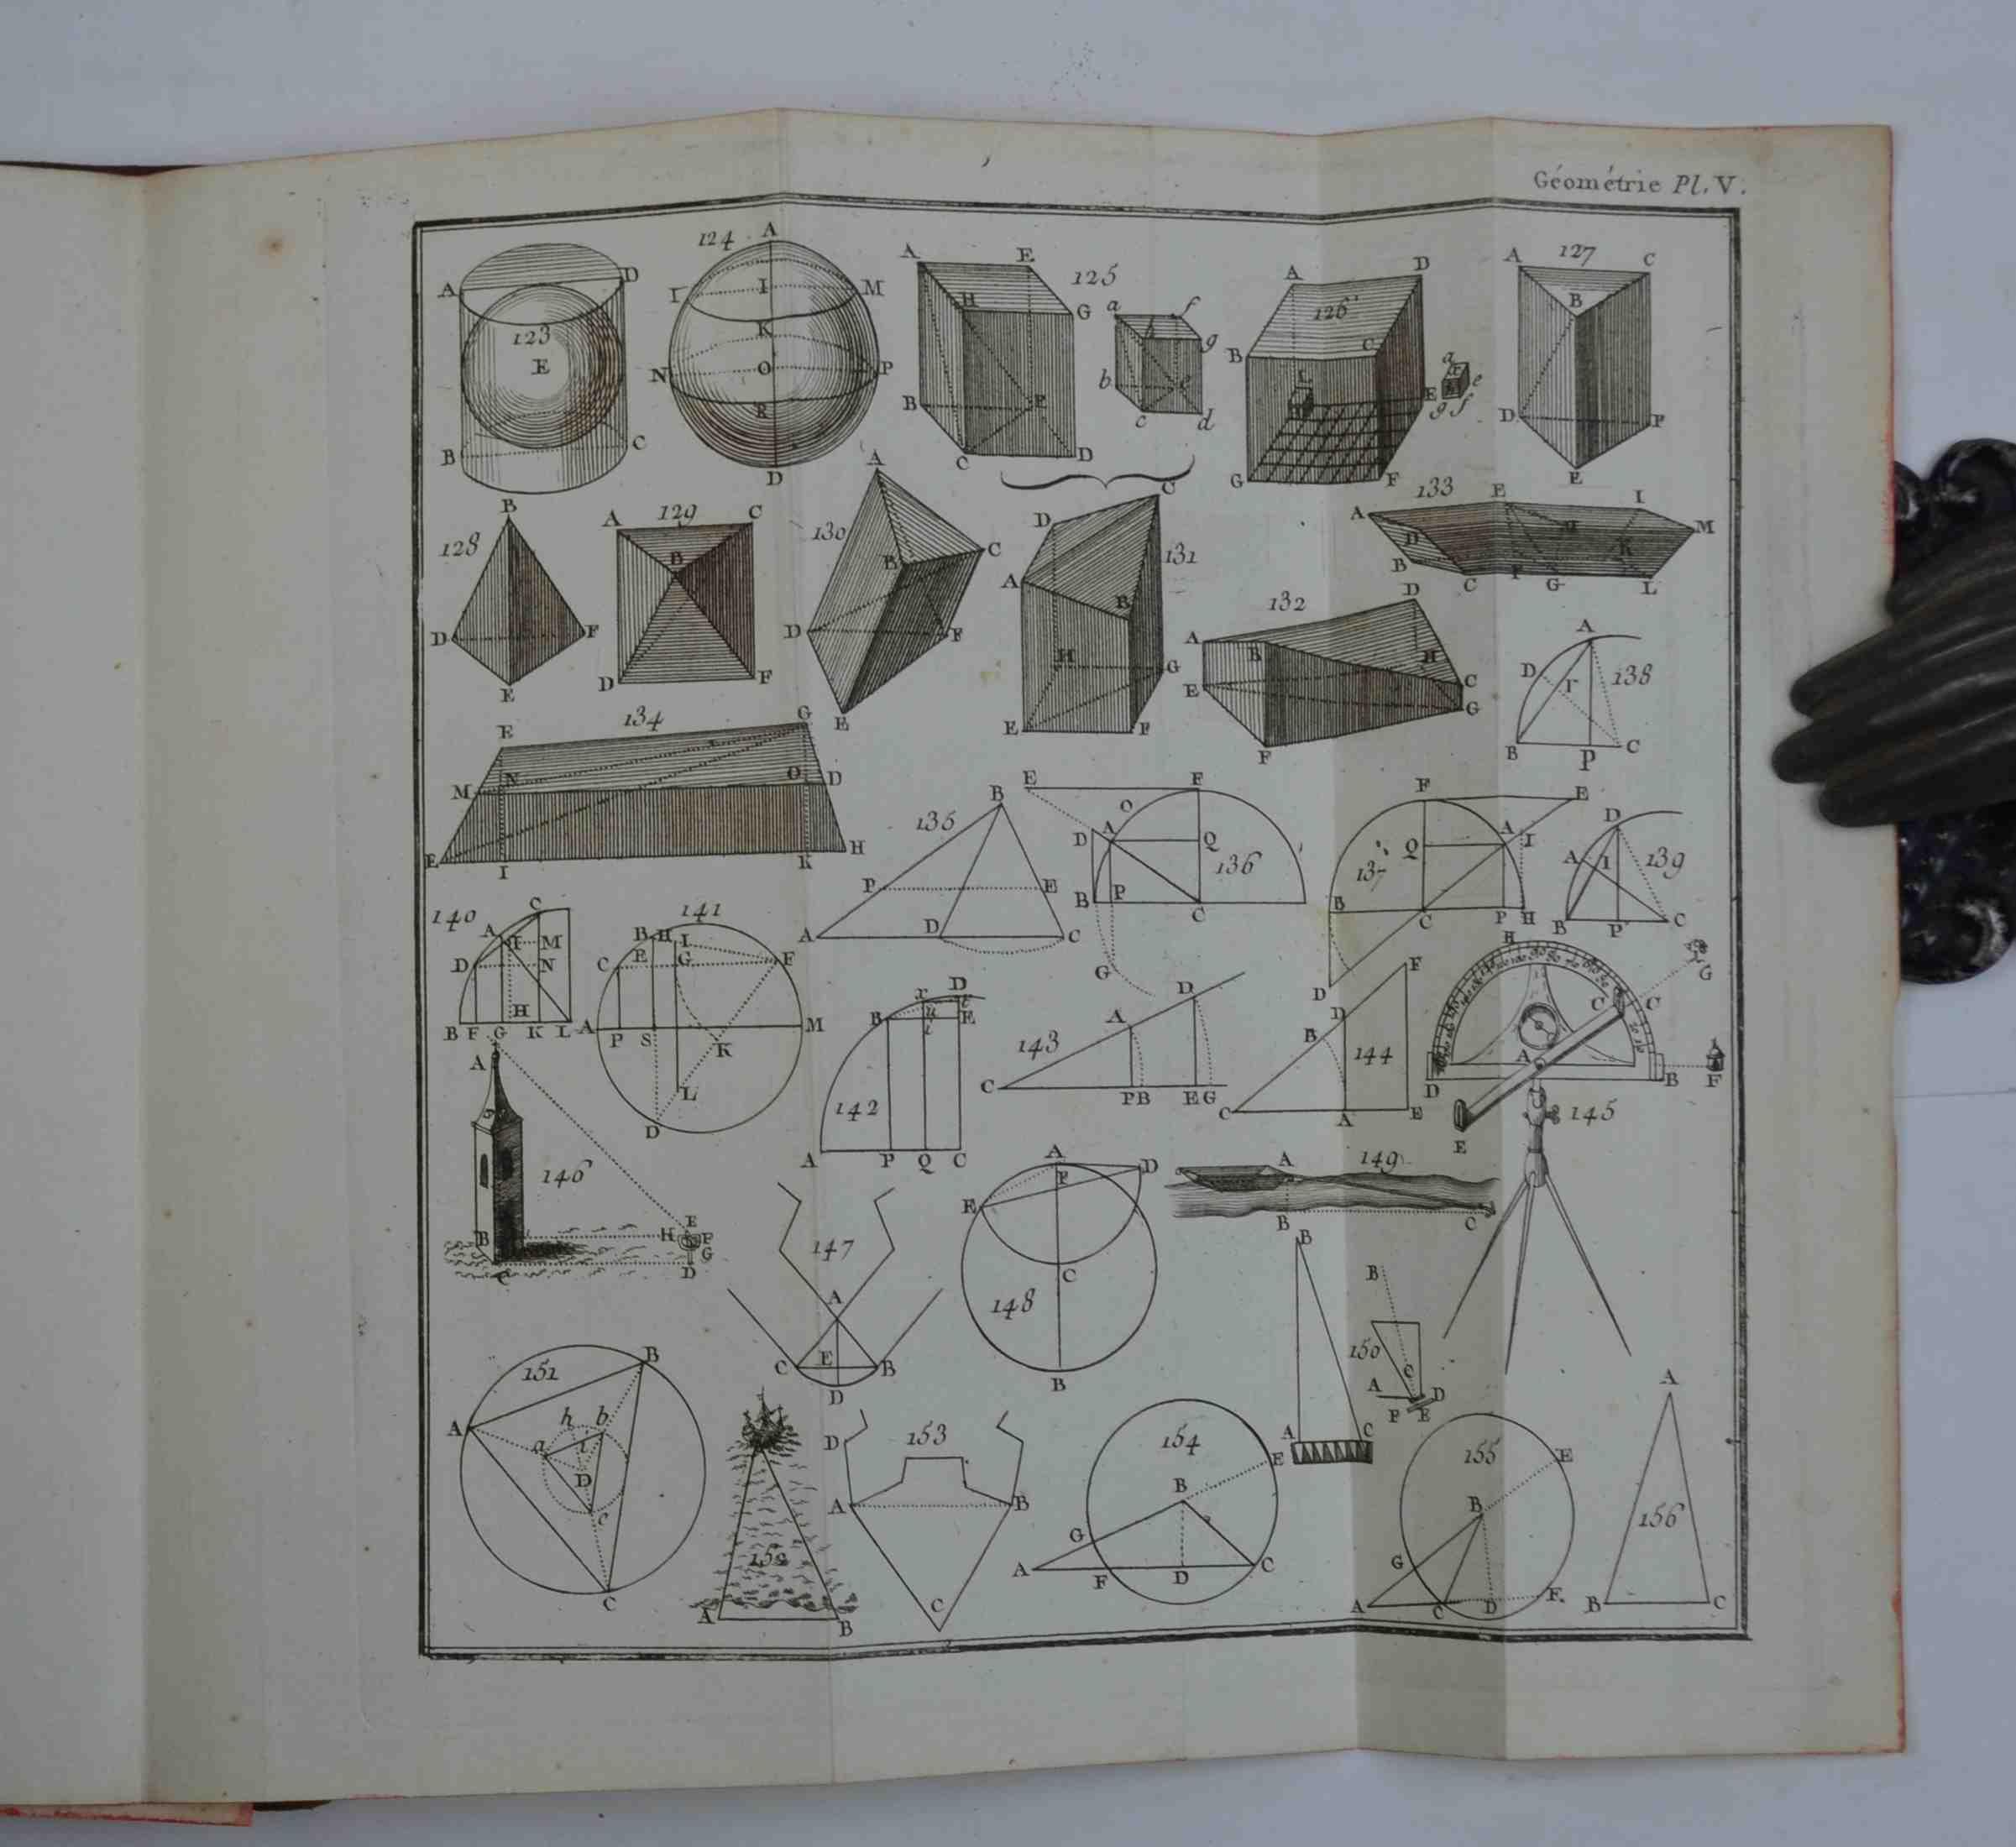 Géométrie Pl. V.
123
A
D
E
B
C
124
A
I
I
M
K
N
O
P
R
D
125
A
E
H
G
B
F
C
D
a
f
g
b
e
c
d
126
A
D
B
C
L
E
G
F
a
x
e
g
f
127
A
C
B
D
F
E
128
B
D
F
E
129
A
C
B
D
F
130
A
B
C
D
F
E
131
D
C
A
B
H
G
E
F
132
D
A
B
H
C
E
G
F
133
A
E
I
D
H
M
B
K
C
F
G
L
138
A
D
I
B
P
C
134
E
G
M
N
O
D
E
I
K
H
135
B
P
E
A
D
C
136
E
F
O
D
A
Q
B
P
C
G
137
F
E
Q
A
I
B
C
P
H
D
139
D
A
I
B
P
C
140
C
A
I
M
D
N
H
B
F
G
K
L
141
B
H
I
C
E
G
F
A
P
S
M
K
L
D
142
D
B
E
A
P
Q
C
143
D
A
C
P
B
E
G
144
F
D
B
C
A
E
145
H
G
C
C
A
D
B
F
E
146
A
B
E
H
F
G
C
D
147
A
C
E
B
D
148
A
D
F
E
C
B
149
A
B
C
150
B
A
C
B
C
A
D
P
E
151
B
A
h
b
a
i
D
c
C
152
A
B
153
D
A
B
C
154
E
B
G
A
F
D
C
155
E
B
G
A
C
D
F
156
A
B
C